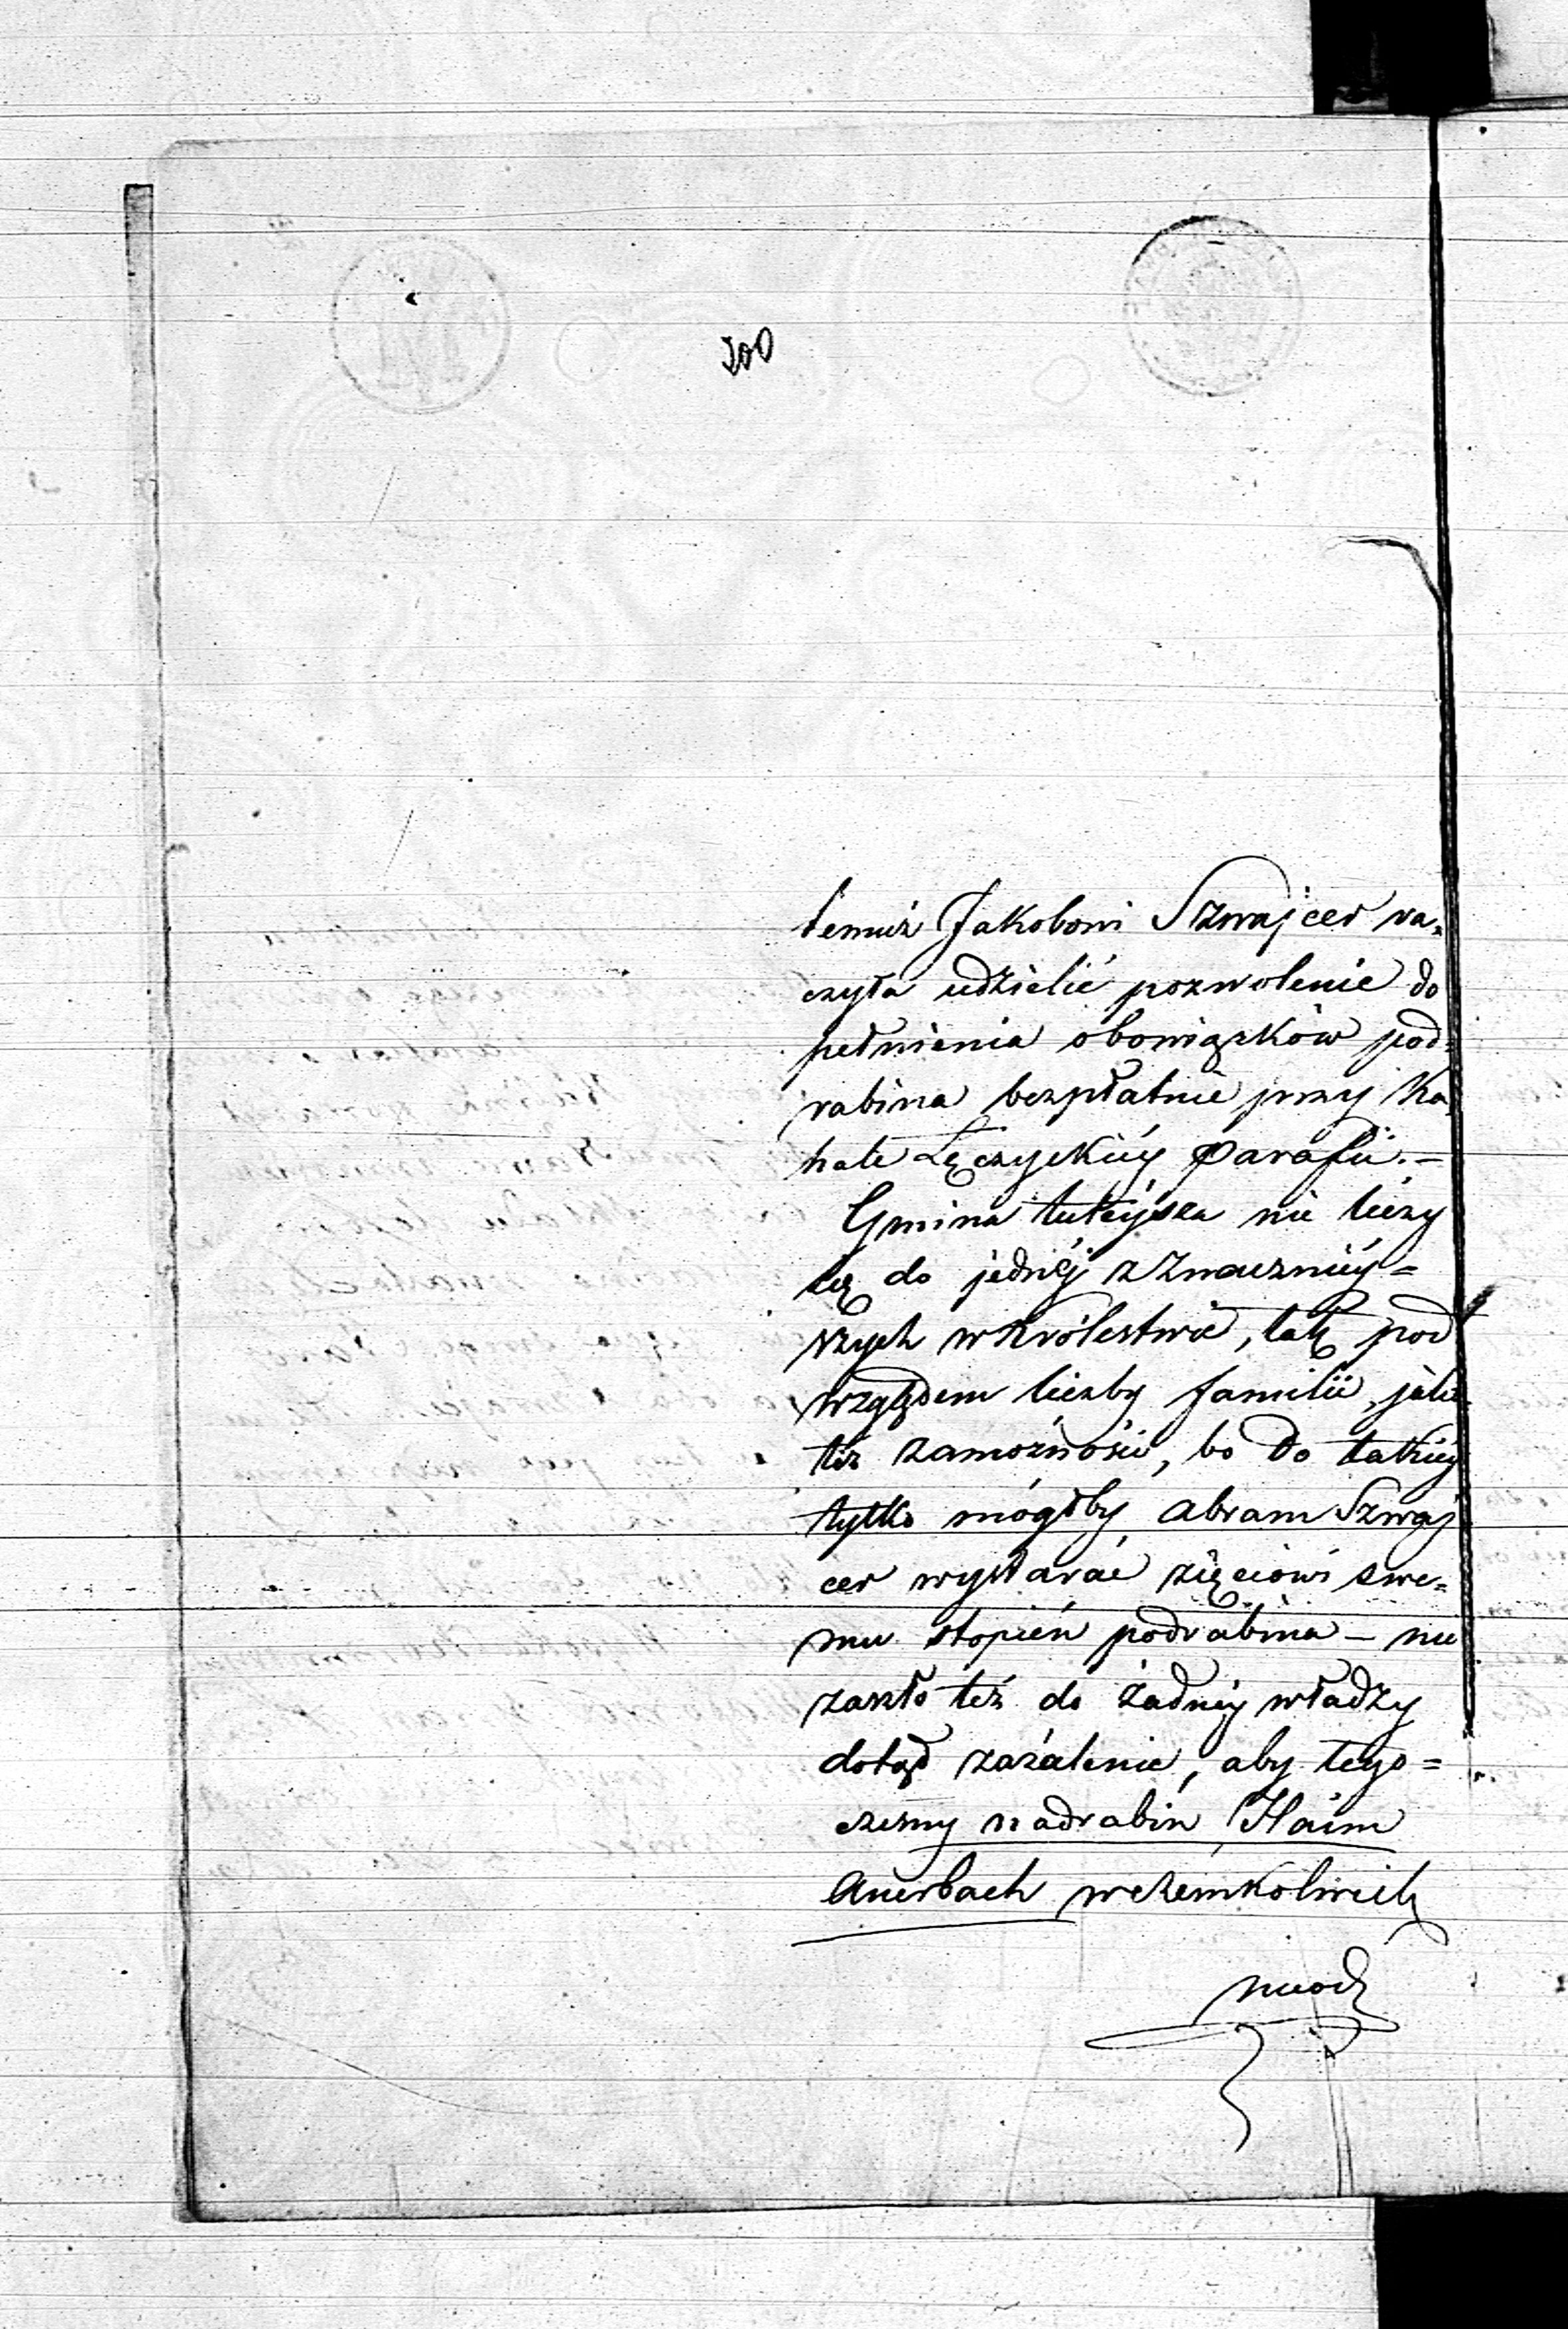 200
temuż Jakobowi Szwajcer ra=
czyła udzielić pozwolenie do
pełnienia obowiązków pod=
rabina bezpłatnie przy Ka
hale Łęczyckiéy Parafii.—
Gmina tutéysza nie liczy
się do jednéj z znaczniéy=
szych w Królestwie, tak pod
względem liczby familii, jako
téż zamożności, bo do takiéy
tylko mógłby Abram Szwaj
cer wystarać zięciowi swe=
mu stopień podrabina — nie
zaszło też do żadnéy władzy
dotąd zażalenie, aby tego=
czesny nadrabin Haim
Auerbach w czémkolwiek
nieod